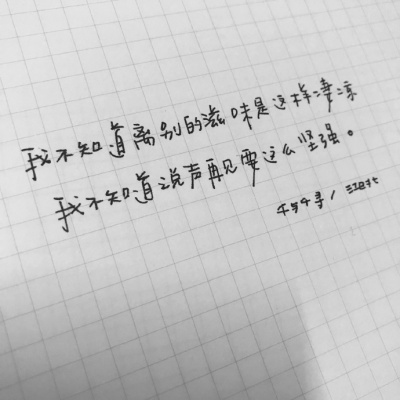 我不知道离别的滋味是这样凄凉
我不知道说声再见要这么坚强。
千与千寻/